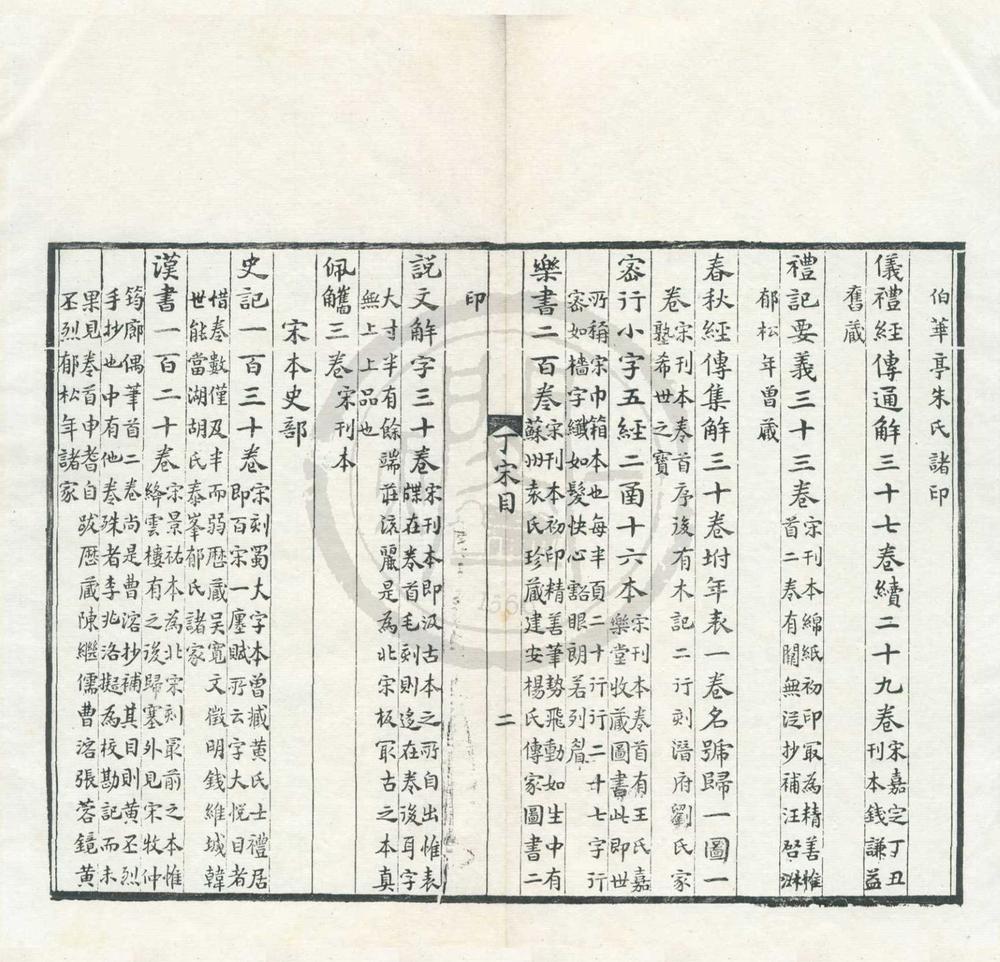 伯華亭朱氏諸印
儀禮經傳通解三十七卷續二十九卷宋嘉定丁丑
刊本錢謙益
舊藏
禮記要義三十三卷宋刊本綿紙初印冣為精善惟
首二卷有闕無從抄補汪啓淋
郁松年曾藏
春秋經傳集解三十卷坿年表一卷名號歸一圖一
卷宋刊本卷首序後有木記二行刻潛府劉氏家
塾希世之寶
密行小字五經二函十六本宋刊本卷首有王氏嘉
樂堂收藏圖書此即世
所稱宋巾箱本也每半頁二十行行二十七字行
密如檣字纖如髮快心豁眼朗若列眉
樂書二百卷宋刊本初印精善筆勢飛動如生中有
蘇州袁氏珍藏建安楊氏傳家圖書二
印
丁宋目
二
説文解字三十卷宋刊本即汲古本之所自出惟表
牒在卷首毛刻則迻在卷後耳字
大寸半有餘端莊流麗是為北宋板冣古之本真
無上上品也
佩觿三卷宋刊本
宋本史部
史記一百三十卷宋刻蜀大字本曾臧黄氏士禮居
即百宋一廛賦所云字大悅目者
惜卷數僅及半而弱歷藏吴寬文徵明錢維城韓
世能當湖胡氏泰峯郁氏諸家
漢書一百二十卷宋景祐本為北宋刻冣前之本惟
絳雲樓有之後歸塞外見宋牧仲
筠廊偶筆首二卷尚是曹溶抄補其目則黄丕烈
手抄也中有他卷殊者李兆洛擬為校勘記而未
果見卷首申耆自跋歷藏陳繼儒曹溶張蓉鏡黄
丕烈郁松年諸家